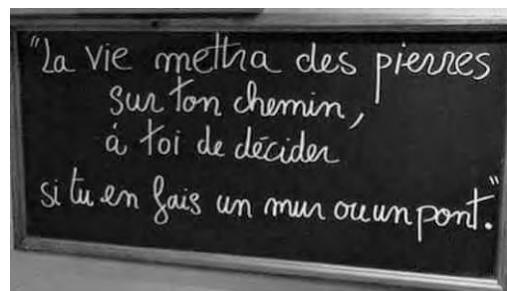 "La vie mettra des pierres
sur ton chemin,
á toi de décider
si tu en fais un mur ou un pont."